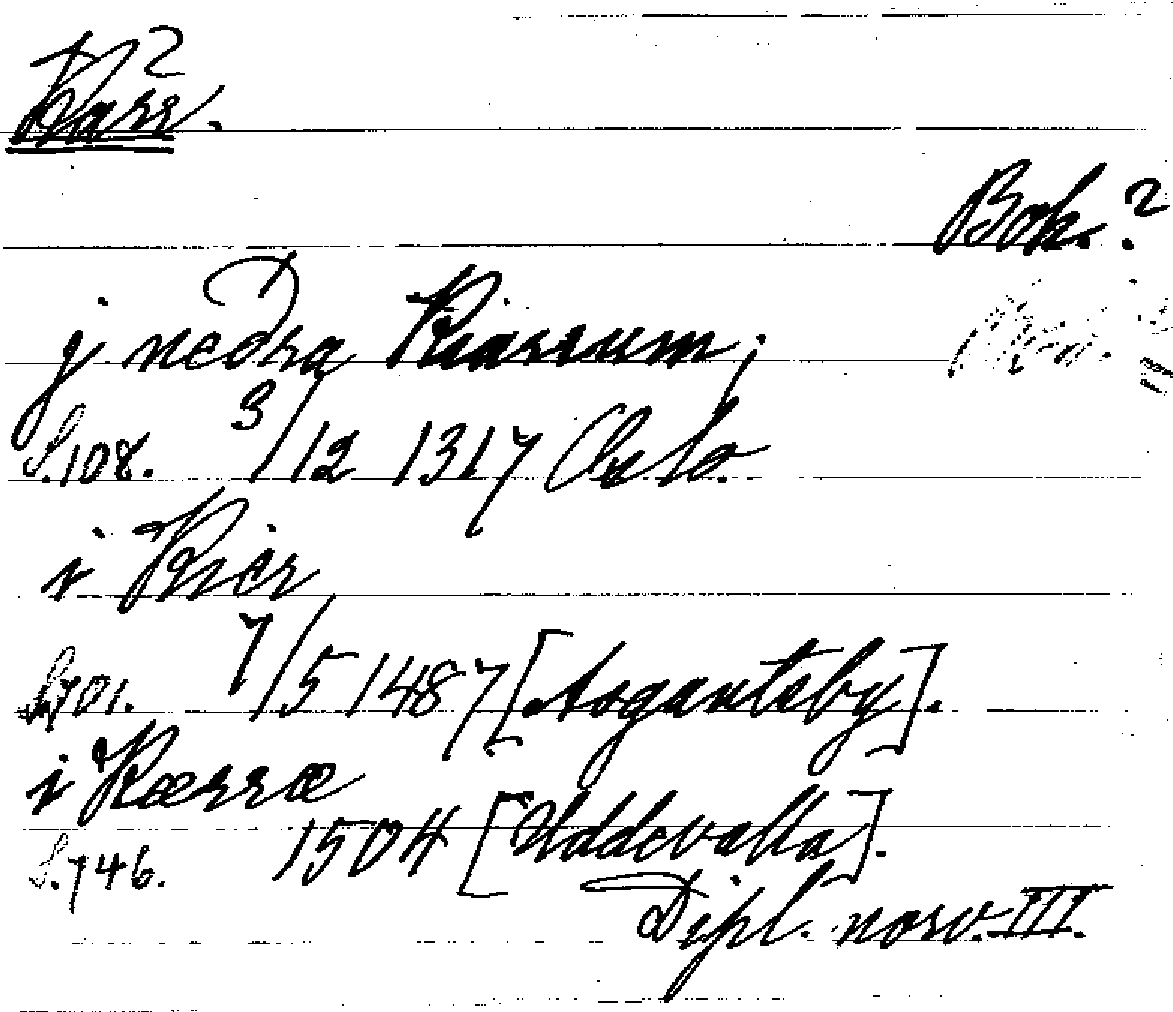 Kärr.
Boh.?
j nedra Kiarrum;
S.108. 3/12 1317 Oslo.
i Kiær
S.701. 7/5 1487 [Asgautsby].
i Kærræ
S.746. 1504 [Uddevalla].
Dipl. norv. III.